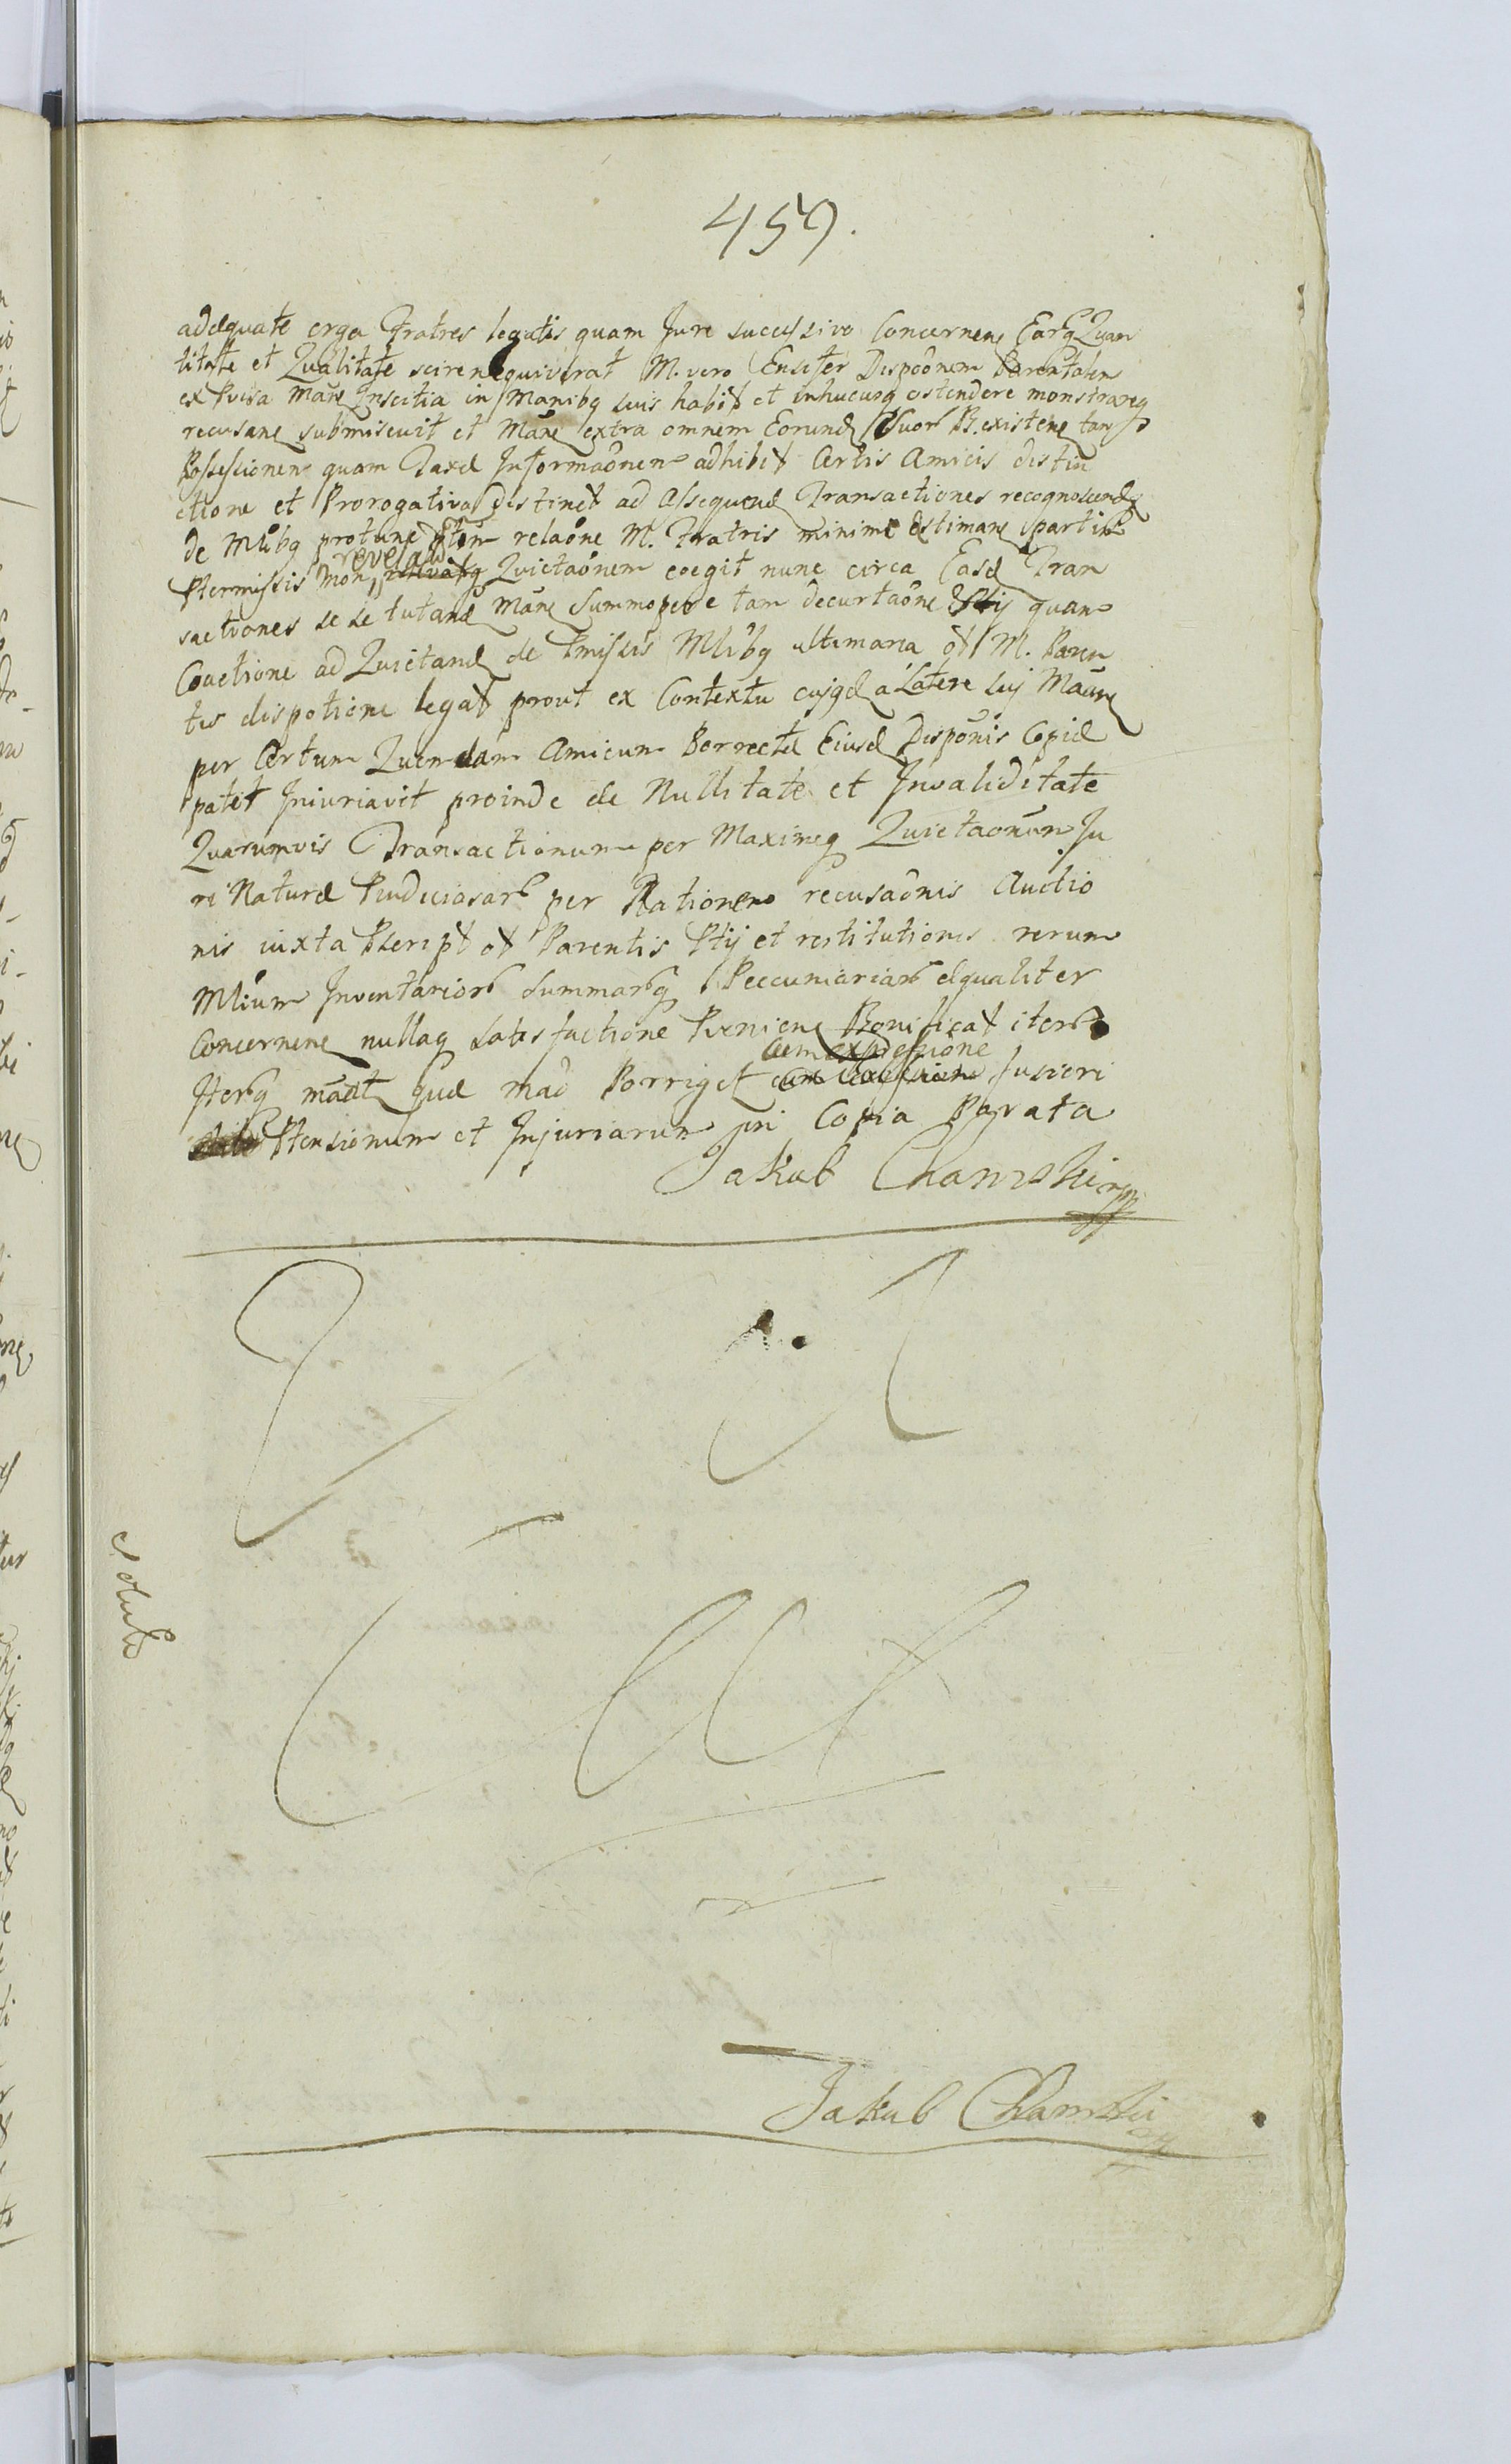 459.
adæquate erga Fratres legatis quam Jure successivo Concernen Earq Quan
titate et Qualitate scire nequiverat M. vero Ensifer Dispoonem Parentalem
ex Pvisa Mane Inscitia in Manibq suis habit et inhucusq ostendere monstrareq
recusans submiscuit et Mane extra omnem Eorund Suor B. existen tam
Possessionem quam Taxæ Informaonem adhibit Certis Amicis distin
ctione et Prorogativa distinct ad Assequend Transactiones recognoscend
de Mlibq protunc relaone M. Fratris minime Estimans partim
Ptermissis non revelatis Quietaonem coegit nunc circa Easd Tran
sactiones se se tutand Mane Summopere tam decurtaone Ptij quam
Coactione ad Quietand de Pmissis Mlibq ultimaria ot M. Paren
tis dispotione legat prout ex Contextu cujqd a Latere suj Maure
per Certum Quendam Amicum Porrectæ Eiusd Disponis Copiæ
patet Iniuriavit proinde de Nullitate et Invaliditate
Quarumvis Transactionum per Maximeq Quietaonum Ju
ri Naturæ Pjudiciosar per Rationem recusaonis Auctio
nis iuxta Pscript ot Parentis Ptij et restitutiones rerum
Mlium Inventarior Summarq Peccuniariar equaliter
Concernen nullaq Satisfactione Pvenien Bonificat iter
Iterq maet quæ mao Porriget cum expressione fusiori
Ptensionum et Injuriarum in Copia Parata
Jakub Chamski mpp
Jakub Chamski